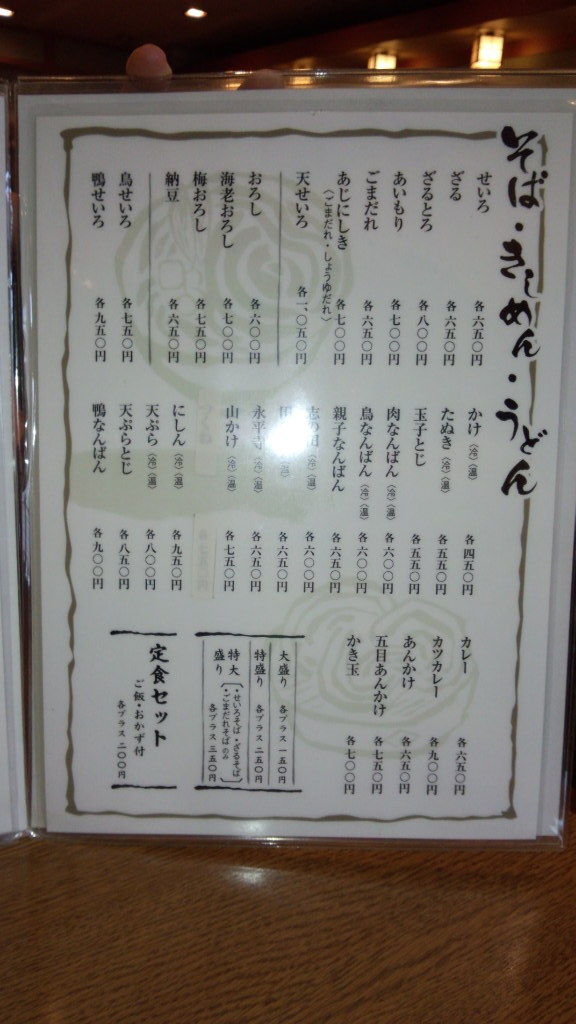 そば・きしめん・うどん
せいろ 各六五〇円
ざる 各六五〇円
ざるとろ 各八〇〇円
あいもり 各七〇〇円
ごまだれ 各六五〇円
あじにしき 各七〇〇円
〈ごまだれ・しょうゆだれ〉
天せいろ 各一、〇五〇円
おろし 各六〇〇円
海老おろし 各七〇〇円
梅おろし 各七五〇円
納豆 各六五〇円
鳥せいろ 各七五〇円
鴨せいろ 各九五〇円
かけ〈冷〉〈温〉 各四五〇円
たぬき〈冷〉〈温〉 各五五〇円
玉子とじ 各五五〇円
肉なんばん〈冷〉〈温〉 各六〇〇円
鳥なんばん〈冷〉〈温〉 各六〇〇円
親子なんばん 各六五〇円
志の田〈冷〉〈温〉 各六〇〇円
各六五〇円
永平寺〈冷〉〈温〉 各六五〇円
山かけ〈冷〉〈温〉 各七五〇円
にしん〈冷〉〈温〉 各九五〇円
天ぷら〈冷〉〈温〉 各八〇〇円
天ぷらとじ 各八五〇円
鴨なんばん 各九〇〇円
カレー 各六五〇円
カツカレー 各九〇〇円
あんかけ 各六五〇円
五目あんかけ 各七五〇円
かき玉 各七〇〇円
大盛り 各プラス 一五〇円
特盛り 各プラス 二五〇円
特大盛り
・せいろそば・ざるそば
・ごまだれそば のみ
各プラス 三五〇円
定食セット
ご飯・おかず付
各プラス 二〇〇円